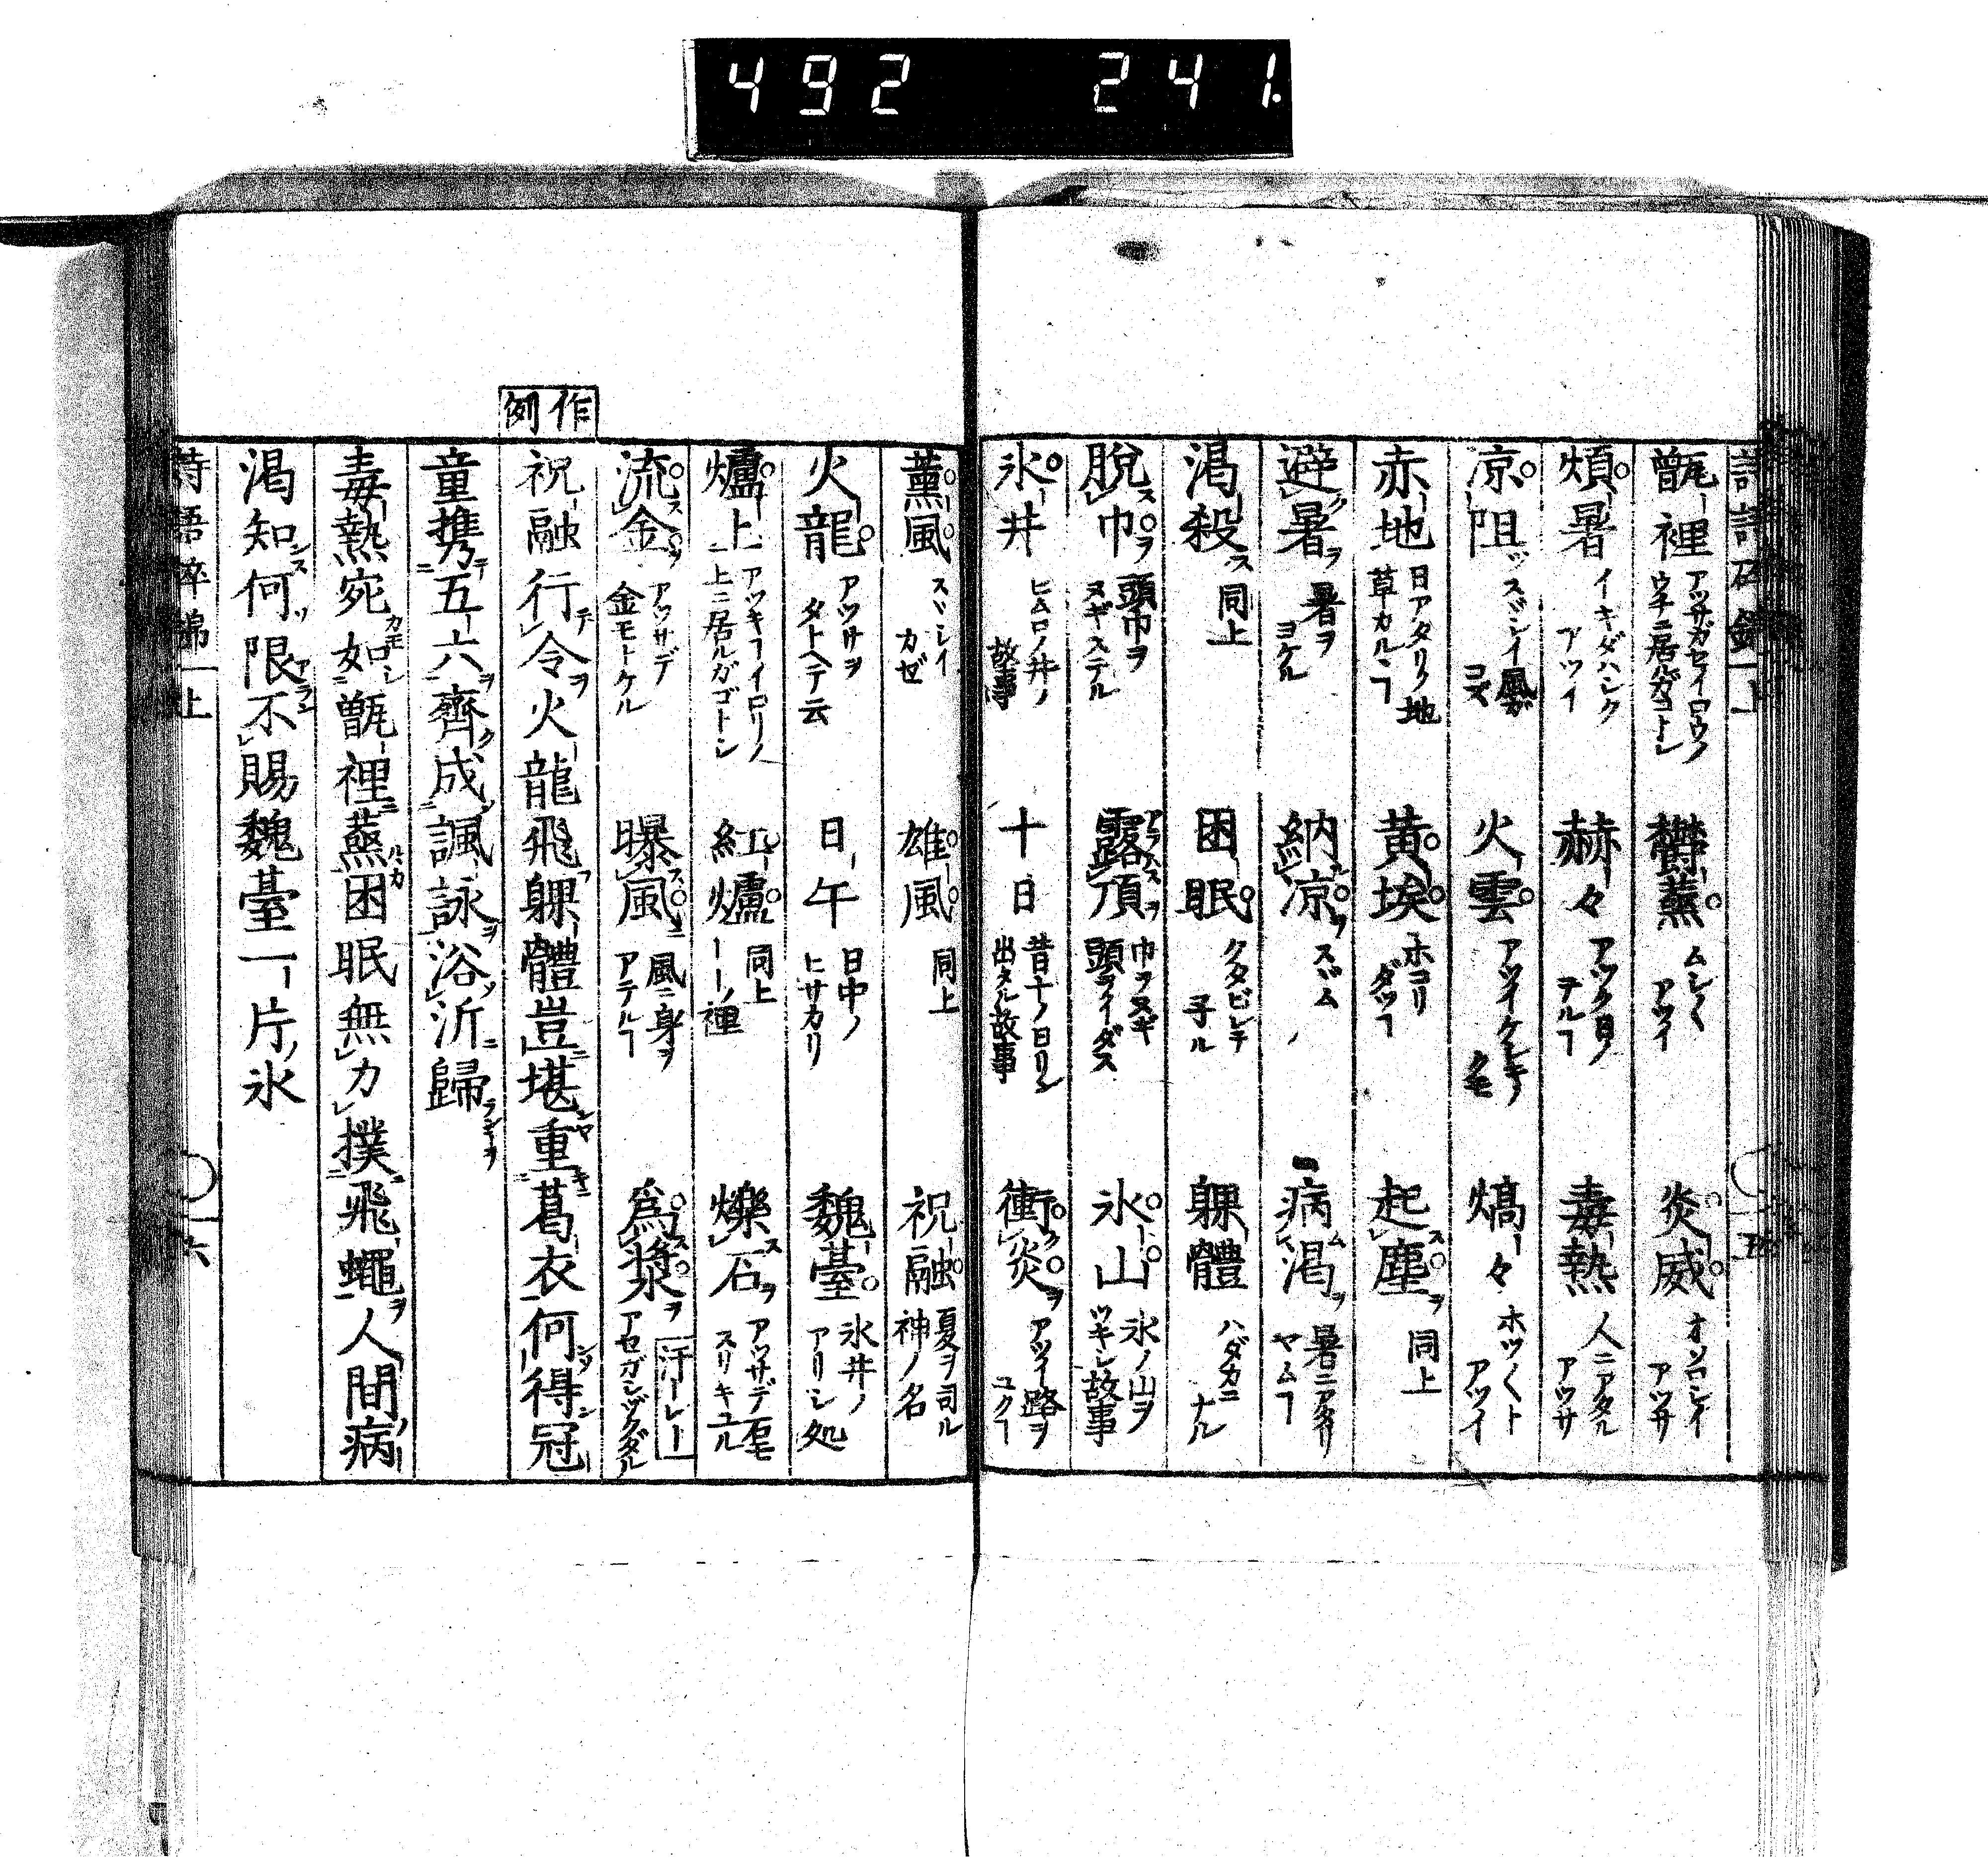 492 241.
甑裡 アツサガセイロウノウチニ居ルガゴトシ 欝蒸 ムシ〱アツイ 炎威 オソロシイアツサ
煩暑 イキダハシクアツイ 赫々 アツク日ノテルヿ 毒熱 人ニアタルアツサ
凉阻 スヾシイ風ガコズ 火雲 アツイケシキノクモ 熇々 ホツ〱トアツイ
赤地 日アタリノ地草カルヽヿ 黄埃 ホコリダツヿ 起塵 同上
避暑 暑ヲヨケル 納凉 スヾム 病渇 暑ニアタリヤムヿ
渇殺 同上 困眠 クタビレテ子ル 躶體 ハダカニナル
脫巾 頭巾ヲヌギステル 露頂 巾ヲヌギ頭ヲイダス 氷山 氷ノ山ヲツキシ故事
氷井 ヒムロノ井ノ故事 十日 昔十ノ日リン出タル故事 衝炎 アツイ路ヲユクヿ
薰風 スヾシイカゼ 雄風 同上 祝融 夏ヲ司ル神ノ名
火龍 アツサヲタトヘテ云 日午 日中ノヒサカリ 魏臺 氷井ノアリシ処
爐上 アツキヿイロリノ上ニ居ルガゴトシ 紅爐 同上ーーノ裡 爍石 アツサデ石モスリキユル
流金 アツサデ金モトケル 曝風 風ニ身ヲアテルヿ 爲漿 汗ーレーアセガシヅクダル
作例
祝融行令火龍飛躶體豈堪重葛衣何得冠
童携五六齊成諷詠浴沂歸
毒熱宛如甑裡蒸困眠無力撲飛蠅人間病
渇知何限不賜魏臺一片氷